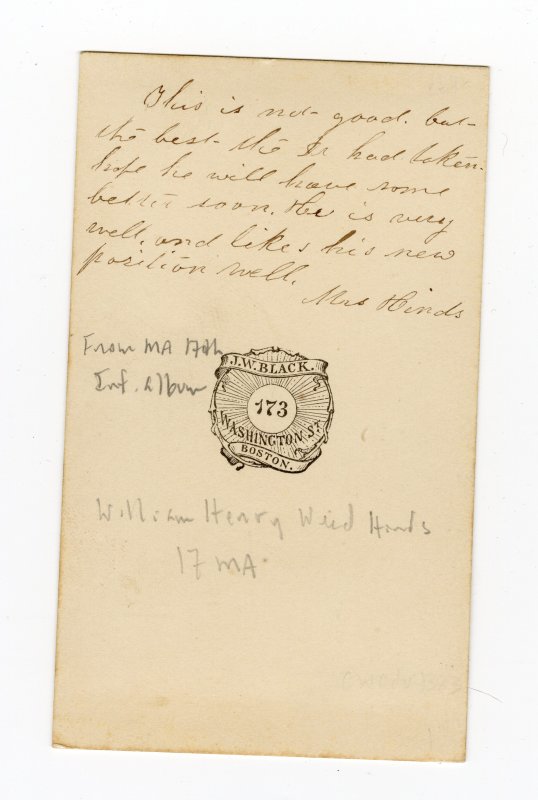 This is not good. but
the best the Dr had taken.
hope he will have some
better soon. He is very
well, and likes his new
position well.
Mrs Hinds
From MA 17th
Inf. Album
J.W. BLACK.
173
WASHINGTON ST.
BOSTON.
William Henry Hinds
17 MA.